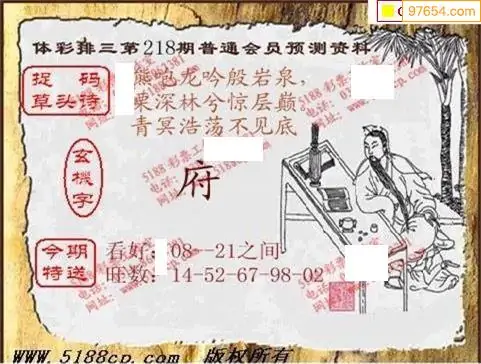 97654.com
体彩排三第218期普通会员预测资料
捉码
草头诗
熊咆龙吟殷岩泉，
栗深林兮惊层巅。
青冥浩荡不见底
玄機字
府
今期
特送
看好：08--21之间
旺数：14-52-67-98-02
5188彩票工
www.5188cp.com 版权所有